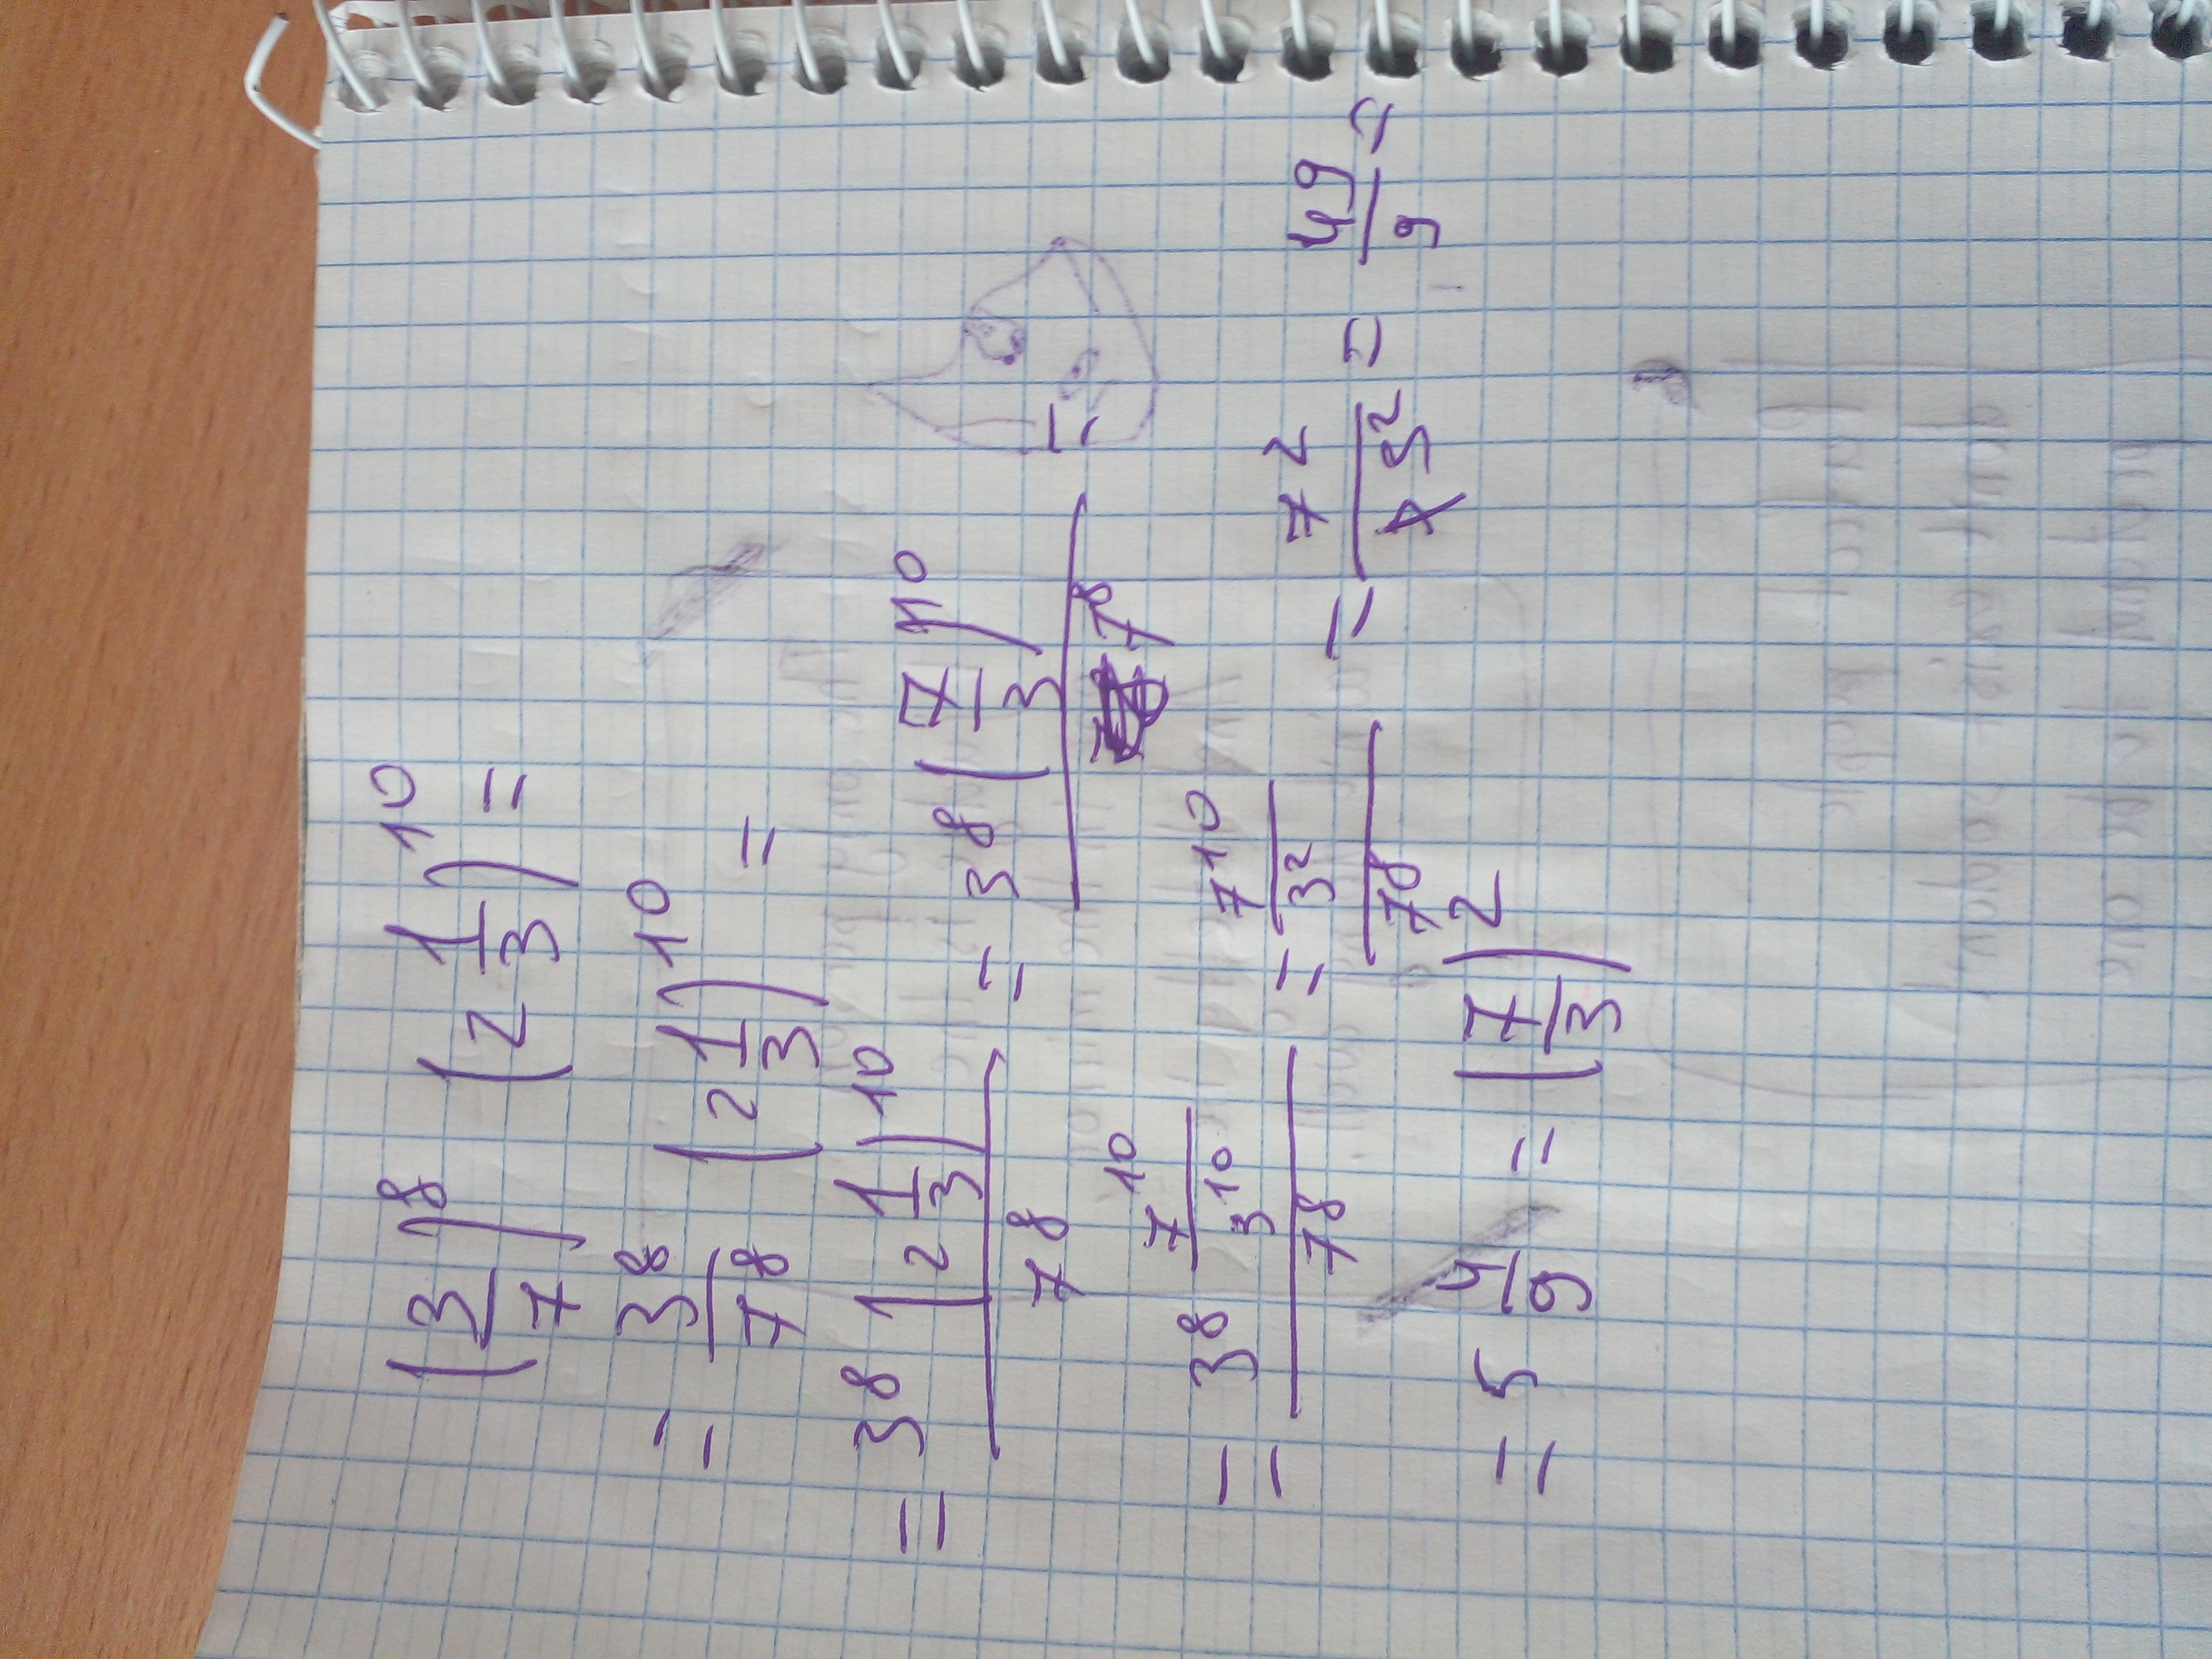 (3/7)^8 (2 1/3)^10 =
= 3^8/7^8 (2 1/3)^10 =
= 3^8 (2 1/3)^10 / 7^8 = 3^8 (7/3)^10 / 7^8 =
= 3^8 7^10/3^10 / 7^8 = 7^10/3^2 / 7^8 = 7^2/3^2 = 49/9 =
= 5 4/9 = (7/3)^2